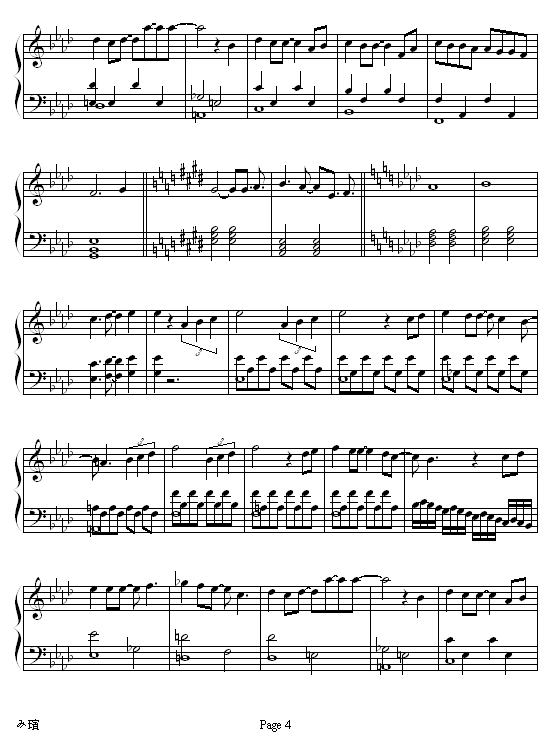 み璸
Page 4